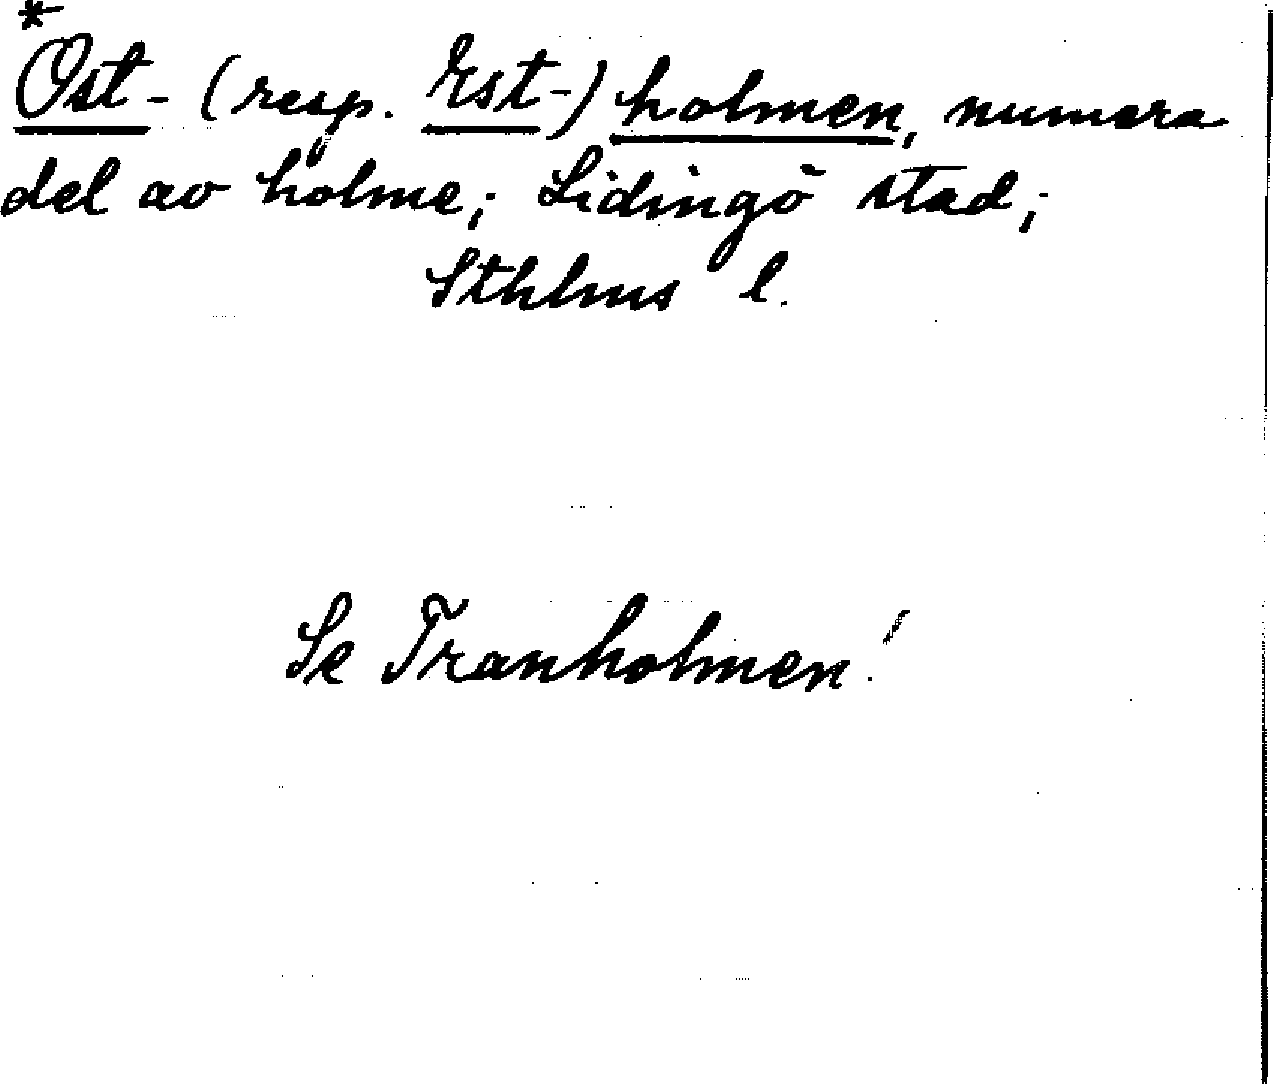 *
Ost- (resp. Est-) holmen, numera
del av holme; Lidingö stad;
Sthlms l.
Se Tranholmen!